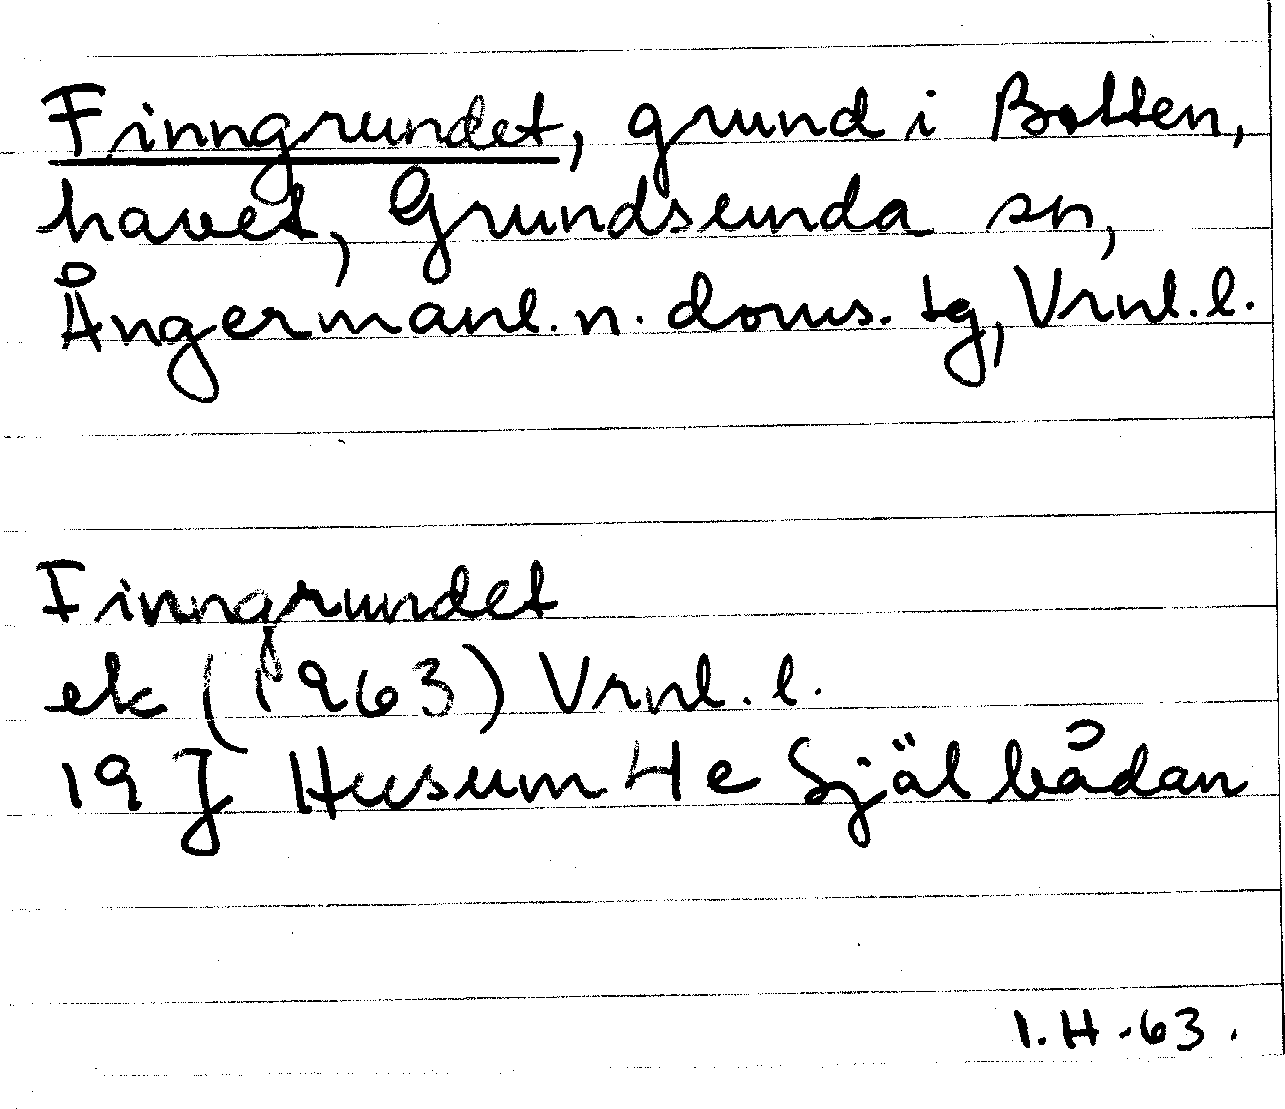 Finngrundet, grund i Botten,
havet, Grundsunda sn,
Ångermanl. n. doms. tg, Vrnl. l.
Finngrundet
ek (1963) Vrnl. l.
19 J Husum 4 e Själbådan
I. H. -63.